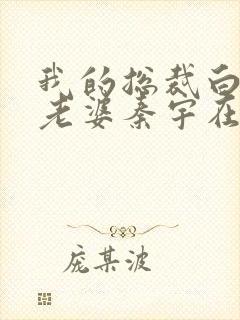 我的总裁白
老婆秦宇在
庞某波